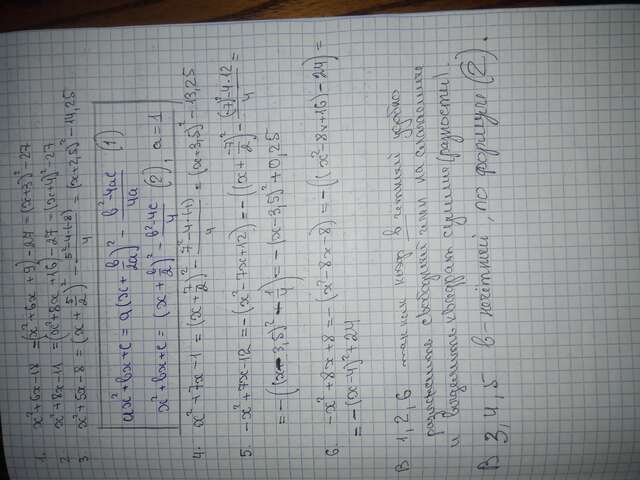 1. x²+6x-18 =(x²+6x+9)-27=(x+3)²-27
2 x²+8x-11 =(x²+8x+16)-27=(x+4)²-27
3 x²+5x-8=(x+5/2)²-(5²-4·(-8))/4=(x+2,5)²-14,25
ax²+bx+c=a(x+b/2a)²-(b²-4ac)/4a (1)
x²+bx+c=(x+b/2)²-(b²-4c)/4 (2), a=1
4. x²+7x-1=(x+7/2)²-(7²-4·(-1))/4=(x+3,5)²-13,25
5. -x²+7x-12=-(x²-7x+12)=-((x+-7/2)²-((-7)²-4·12)/4=
=-((x-3,5)²-1/4)=-(x-3,5)²+0,25
6. -x²+8x+8=-(x²-8x-8)=-((x²-8x+16)-24)=
=-(x-4)²+24
В 1,2,6 коэф в четный удобно
разложить свободный член на слагаемые
и выделить квадрат суммы (разности).
В 3,4,5 в-нечётный, по формуле (2).